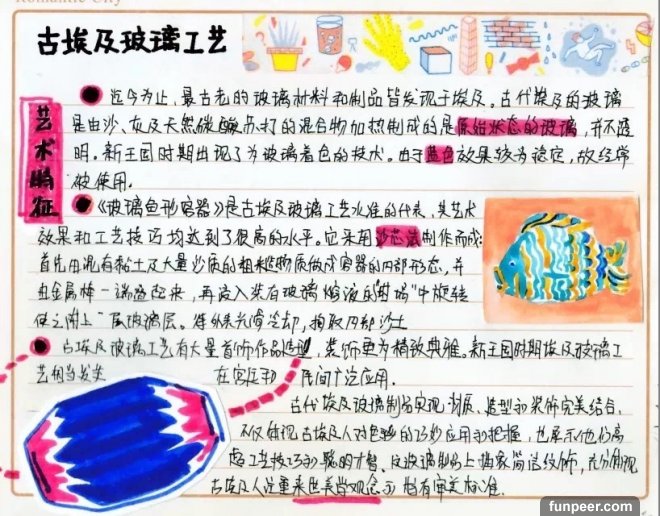 Romantic City
古埃及玻璃工艺
艺术特征
迄今为止,最古老的玻璃材料和制品皆发现于埃及。古代埃及的玻璃
是由沙、灰及天然碳酸苏打的混合物加热制成的是原始状态的玻璃,并不透
明。新王国时期出现了为玻璃着色的技术。由于蓝色效果较为稳定,故经常
被使用。
《玻璃鱼形容器》是古埃及玻璃工艺水准的代表,其艺术
效果和工艺技巧均达到了很高的水平。它采用沙芯法制作而成:
首先用混有黏土及大量沙质的粗糙物质做成容器的内部形态,并
由金属棒一端 起来,再浸入装有玻璃熔液的坩埚中旋转
使之附上一层玻璃层。待外表光滑冷却,掏取内部沙土
古埃及玻璃工艺有大量首饰作品造型,装饰更为精致典雅。新王国时期埃及玻璃工
艺相当发达 在宫廷和民间广泛应用.
古代埃及玻璃制品实现材质、造型和装饰完美结合,
不仅体现古埃及人对色彩的巧妙应用和把握,也展示他们高
超工艺技巧和聪明才智、 玻璃制品上描象简洁纹饰,充分体现
古埃及人注重来世美学观念和 有审美标准.
funpeer.com